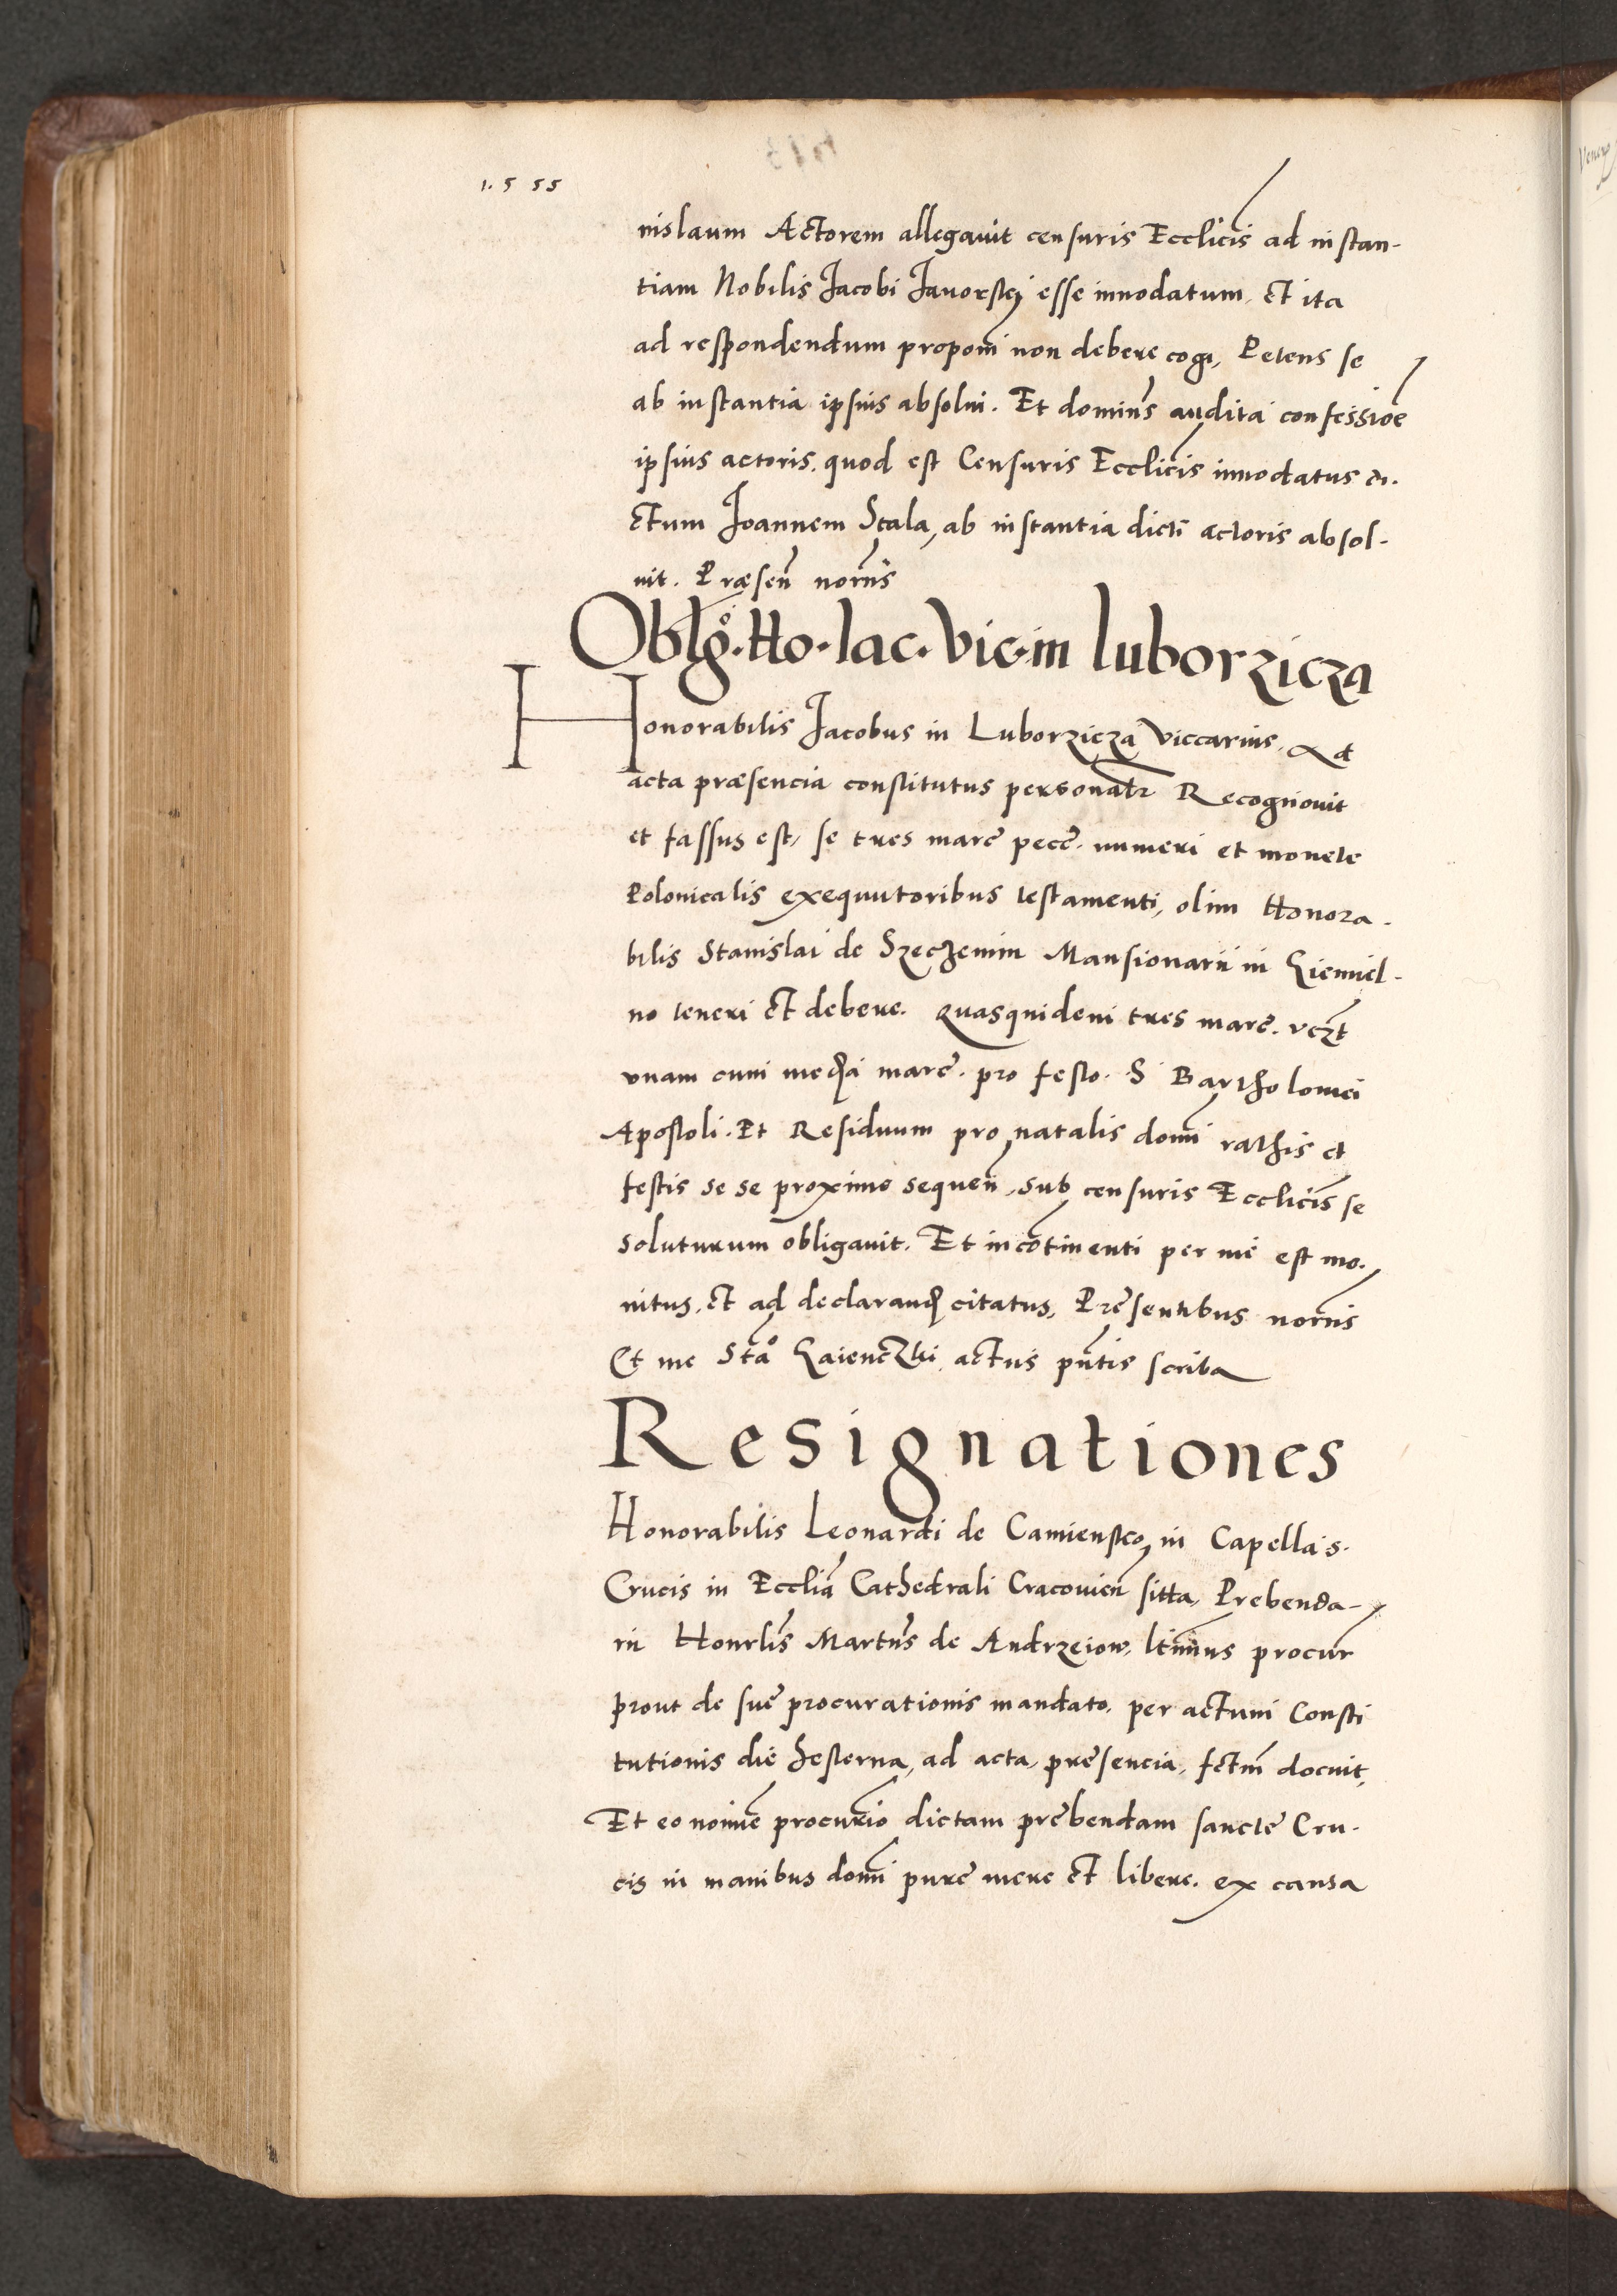 1.5 55
nislaum Actorem allegauit censuris Ecclicis ad instan-
tiam Nobilis Jacobi Jauorskÿ esse innodatum, et ita
ad respondendum proponi non debere cogi, Petens se
ab instantia ipsius absolui. Et dominus audita confessioe
ipsius actoris, quod est Censuris Ecclicis innodatus di.
ctum Joannem Scala, ab instantia dicti actoris absol-
uit. Præsen norñs
Oblgo. Ho. Iac. Vic. in luborzicza
Honorabilis Jacobus in Luborzicza Viccarius, Ad
acta præsencia constitutus personatr Recognouit
et fassus est, se tres marc pecc. numeri et monete
Polonicalis exequutoribus testamenti, olim Honora-
bilis Stanislai de Szeczemin Mansionarii in
no teneri et debere. Quasquidem tres marc. vczt
vnam cum media marc. pro festo. S Bartholomei
Apostoli. Et Residuum pro natalis domi rathis et
festis se se proximo sequen, sub censuris Ecclicis se
soluturum obligauit. Et incōtinenti per me est mo-
nitus, et ad declarand citatus, Presentibus nornis
Et me Stao actus pñtis scriba
Resignationes
Honorabilis Leonardi de Camiensko, in Capella S.
Crucis in Ecclia Cathedrali Cracouien sitta, Prebenda-
rii Honrlis Martnus de Andrzeiow, ltimus procur
prout de sue procurationis mandato, per actum Consti
tutionis die hesterna, ad acta, presencia, fctm docuit,
Et eo noime procurio dictam prebendam sancte Cru-
cis in manibus domi pure mere et libere. ex causa